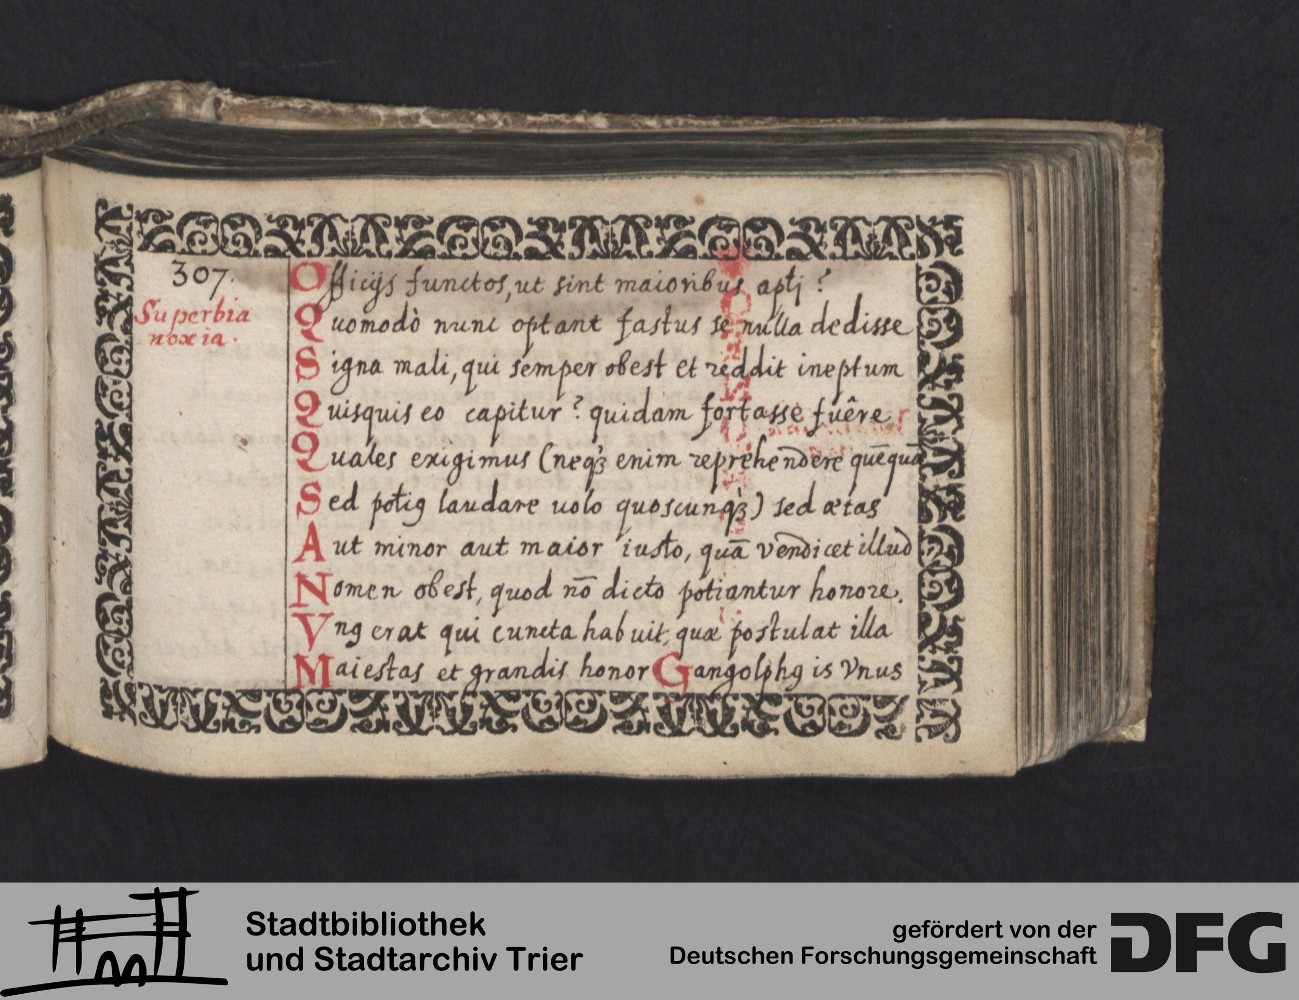 307.
Superbia
noxia.
Officijs functos, ut sint maioribus apti?
Quomodò nunc optant fastus se nulla dedisse
Signa mali, qui semper obest et reddit ineptum
Quisquis eo capitur? quidam fortasse fuêre
Quales exigimus (neqꝫ enim reprehendere quēquā
Sed potiꝰ laudare uolo quoscunqꝫ) sed ætas
Aut minor aut maior iusto, quā vendicet illud
Nomen obest, quod nō dicto potiantur honore.
Vnꝰ erat qui cuncta habuit, quæ postulat illa
Maiestas et grandis honor Gangolphꝰ is Vnus
Stadtbibliothek
und Stadtarchiv Trier
gefördert von der
Deutschen Forschungsgemeinschaft
DFG